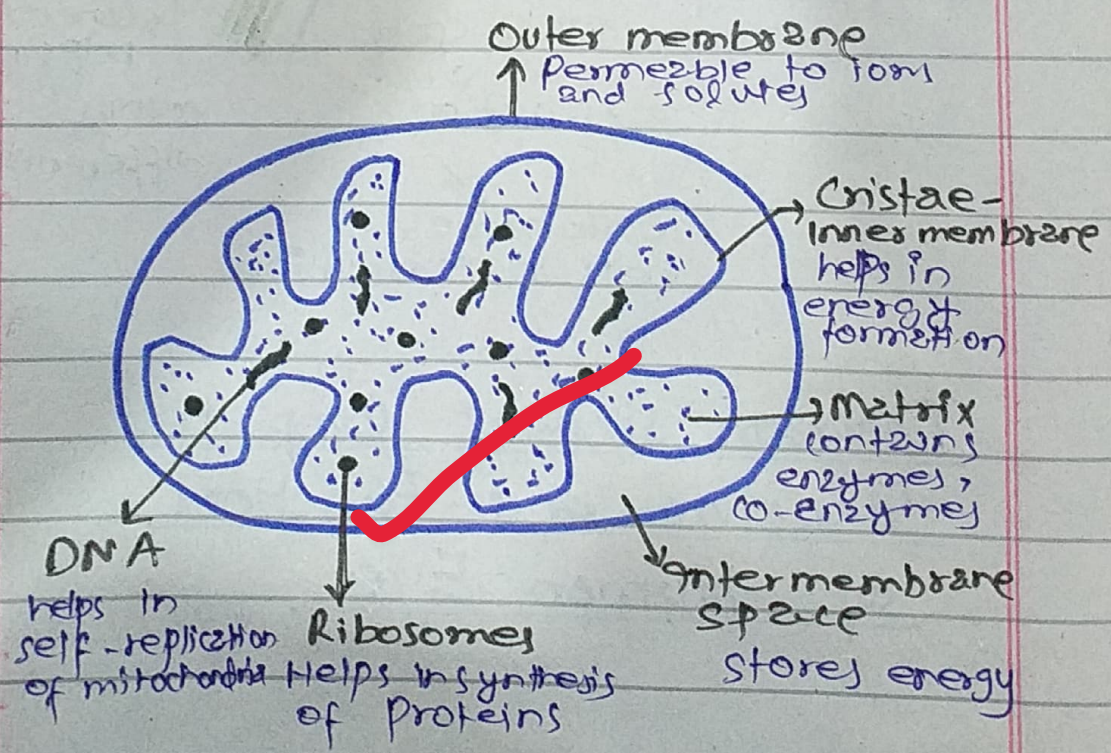 Outer membrane
Permeable to ions
and solutes
Cristae-
Inner membrane
helps in
energy
formation
Matrix
contains
enzymes,
co-enzymes
Intermembrane
space
stores energy
DNA
helps in
self-replication
of mitochondria
Ribosomes
Helps in synthesis
of Proteins